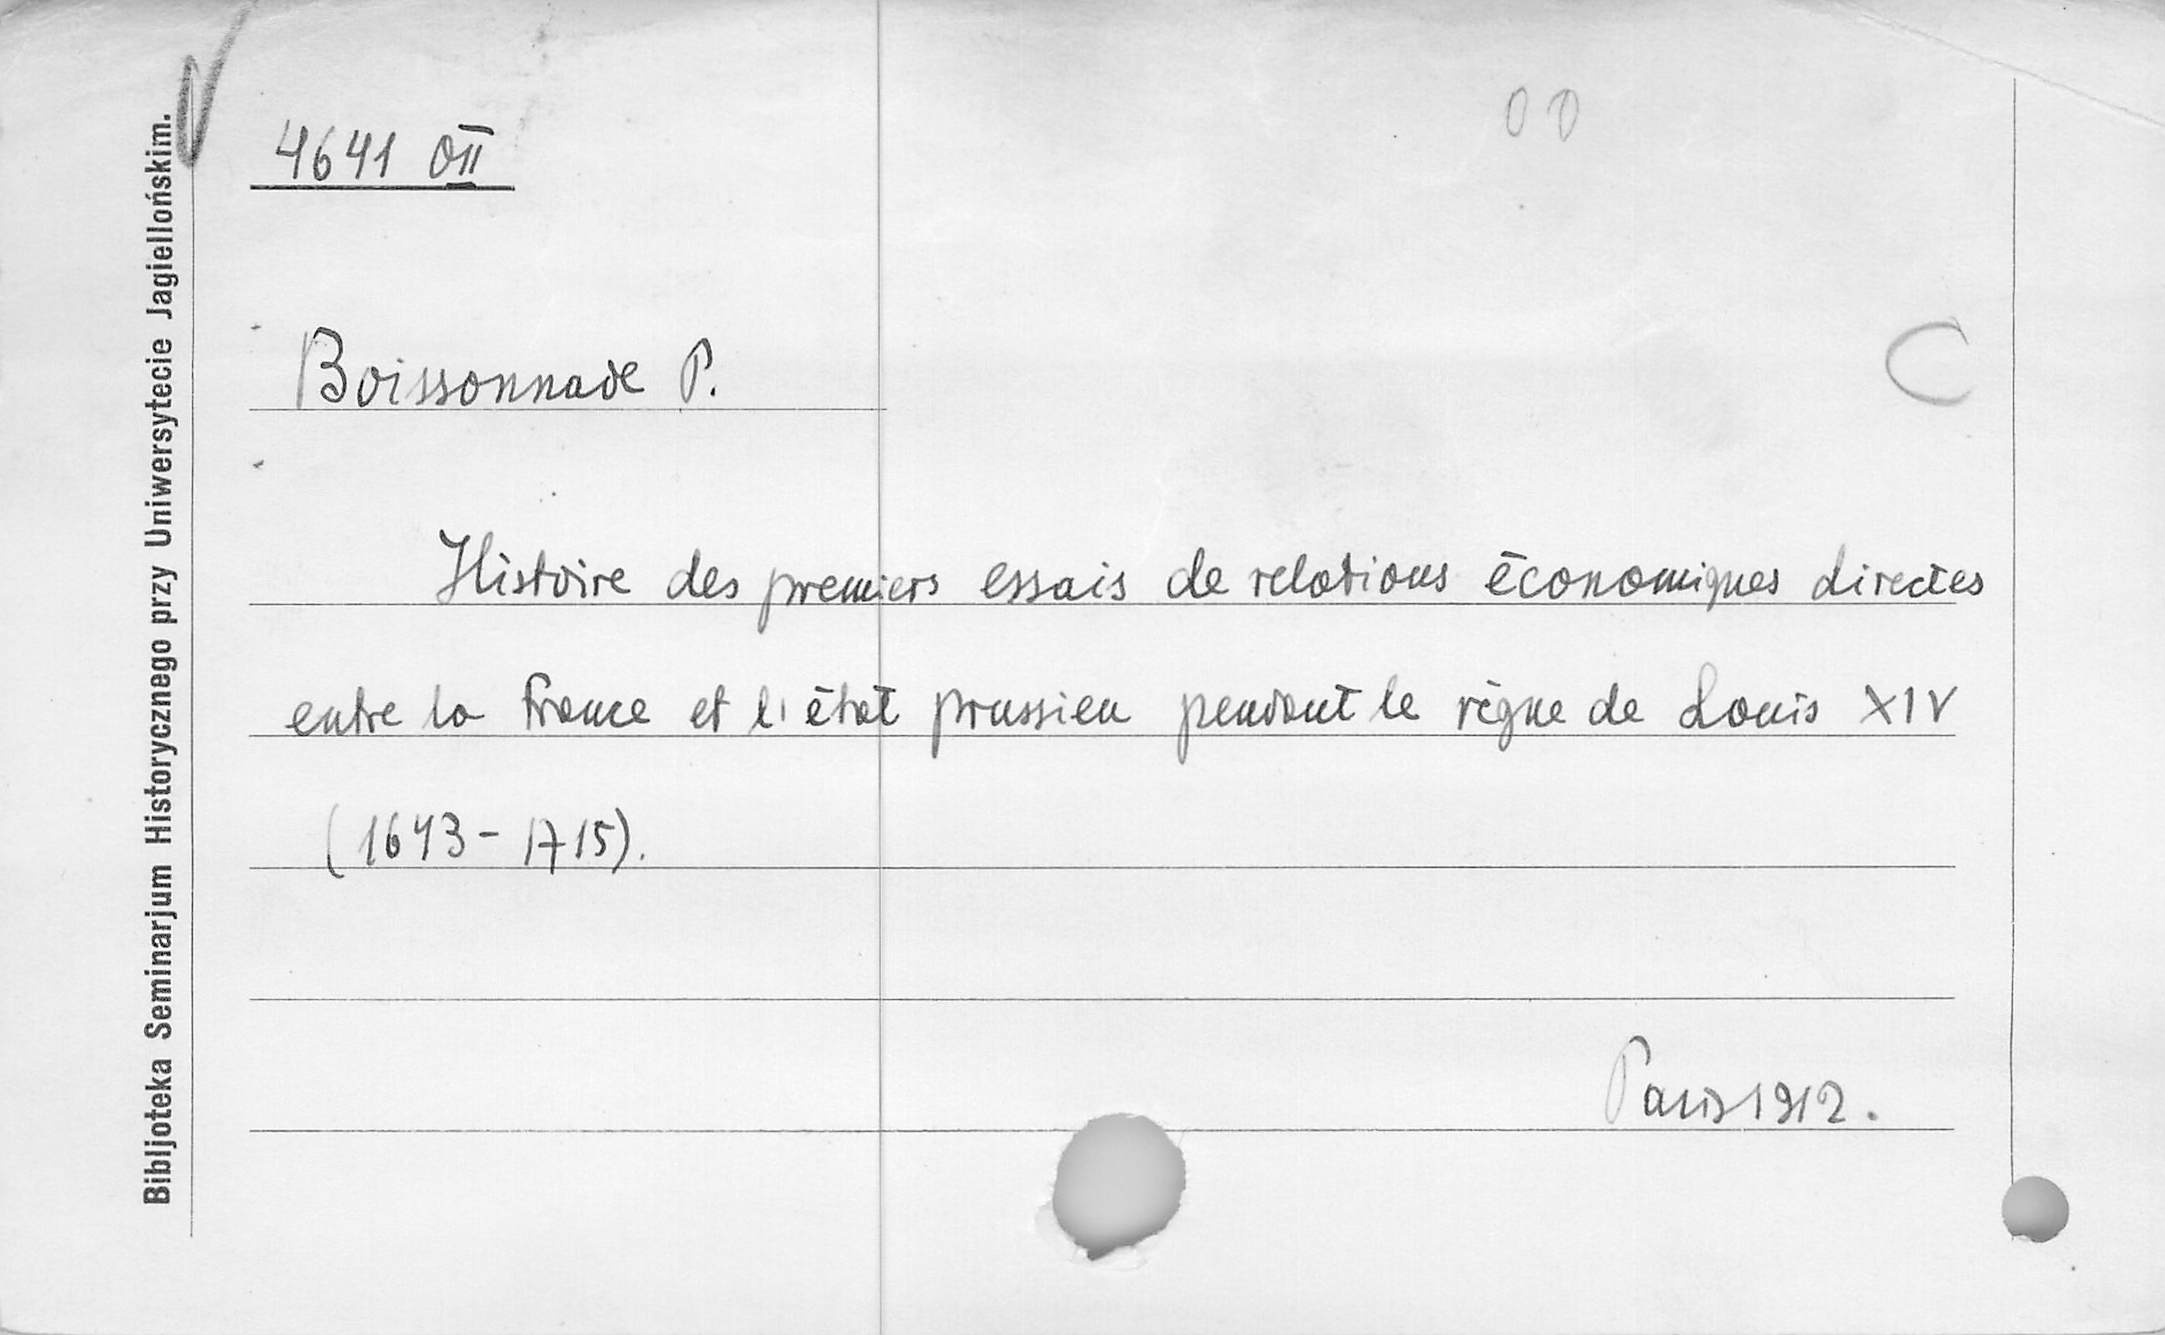 4641 OII
00
Boissonnade P.
C
Histoire des premiers essais de relations économiques directes
entre la France et l'état prussien pendant le règne de Louis XIV
(1643-1715).
Paris 1912.
Bibljoteka Seminarjum Historycznego przy Uniwersytecie Jagiellońskim.